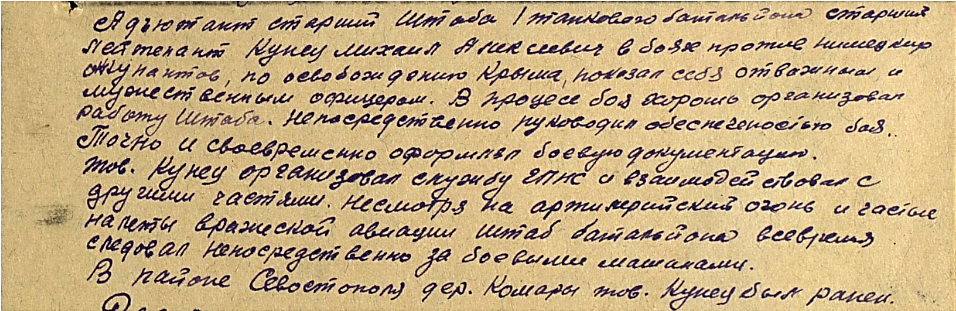 Адъютант старший штаба 1 танкового батальйона старший
лейтенант Кунец Михаил Алексеевич в боях против немецких
окупантов, по освобождению Крыма, показал себя отважным и
мужественным офицером. В процессе боя хорошо организовал
работу штаба. Непосредственно руководил обеспеченостью боя.
Точно и своевременно оформлял боевую документацию.
Тов. Кунец организовал службу и взаимодействовал с
другими частями. Несмотря на артилерийский огонь и частые
налеты вражеской авиации штаб батальйона всевремя
следовал непосредственно за боевыми машинами.
В районе Севостополя дер. Комары тов. Кунец был ранен.